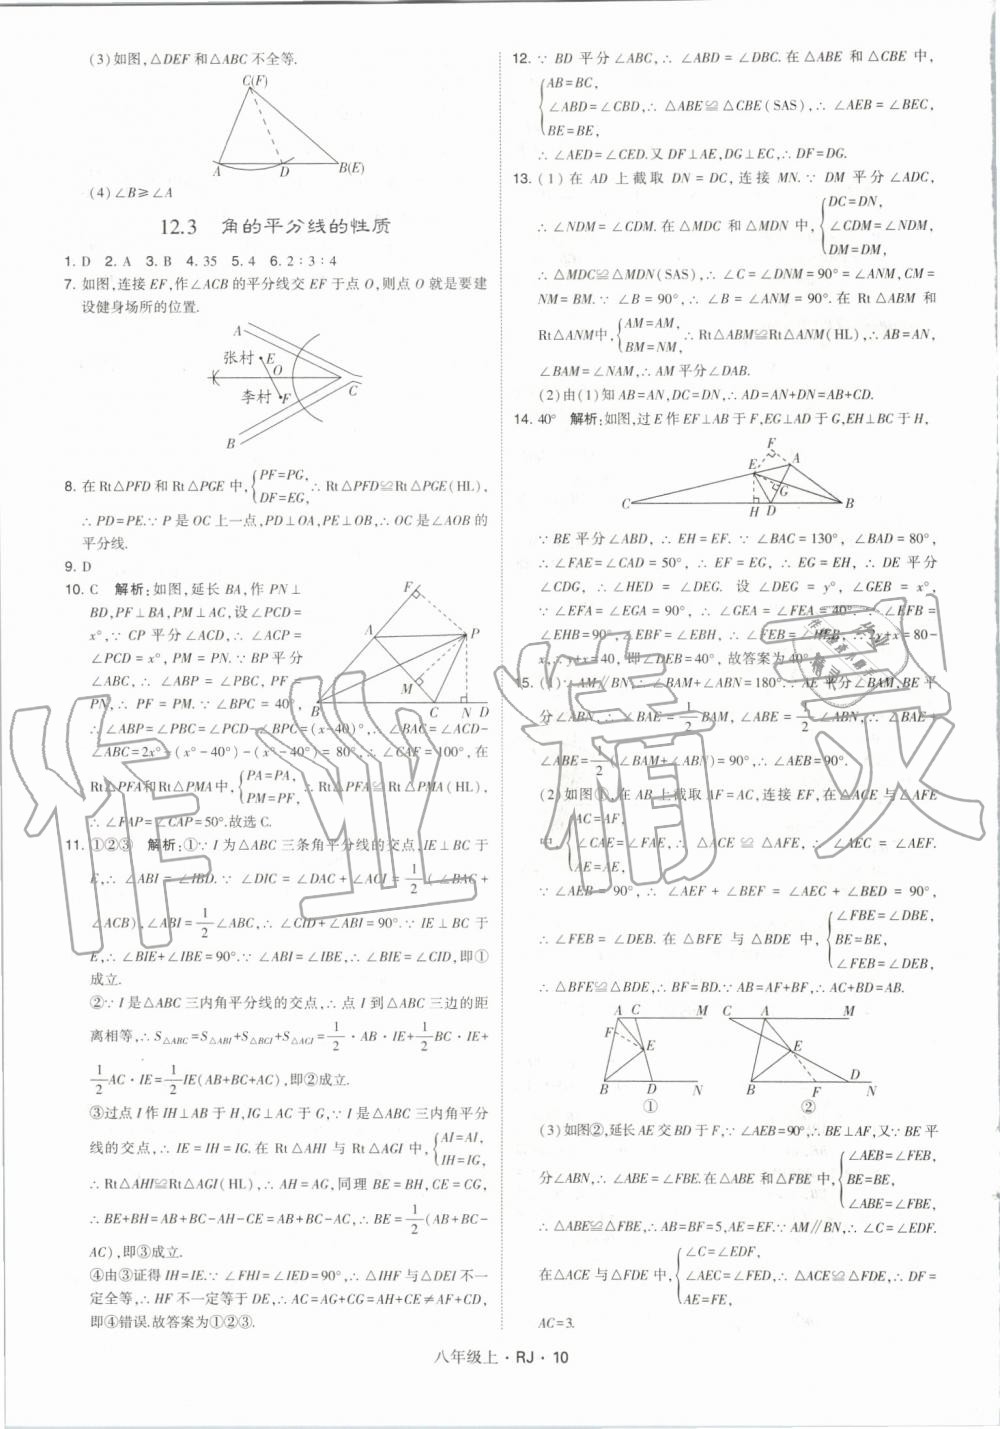 (3)如图,△DEF 和△ABC 不全等.
C(F)
A D B(E)
(4)∠B≥∠A
12.3 角的平分线的性质
1. D 2. A 3. B 4. 35 5. 4 6. 2∶3∶4
7. 如图,连接 EF,作∠ACB 的平分线交 EF 于点 O,则点 O 就是要建
设健身场所的位置.
A
张村 E
O
李村 F
C
B
8. 在 Rt△PFD 和 Rt△PGE 中,{PF=PG, DF=EG, ∴ Rt△PFD≌Rt△PGE(HL),
∴ PD=PE.∵ P 是 OC 上一点,PD⊥OA,PE⊥OB,∴ OC 是∠AOB 的
平分线.
9. D
10. C 解析:如图,延长 BA,作 PN⊥
BD,PF⊥BA,PM⊥AC,设∠PCD=
x°,∵ CP 平分∠ACD,∴ ∠ACP=
∠PCD=x°,PM=PN.∵ BP 平分
∠ABC,∴ ∠ABP=∠PBC,PF=
PN,∴ PF=PM.∵ ∠BPC=40°,
∴ ∠ABP=∠PBC=∠PCD-∠BPC=(x-40)°.∴ ∠BAC=∠ACD-
∠ABC=2x°-(x°-40°)-(x°-40°)=80°,∴ ∠CAF=100°,在
Rt△PFA和Rt△PMA中,{PA=PA, PM=PF, ∴ Rt△PFA≌Rt△PMA(HL),
∴ ∠FAP=∠CAP=50°.故选 C.
F
A P
M
B C N D
11. ①②③ 解析:①∵ I 为△ABC 三条角平分线的交点,IE⊥BC 于
E,∴ ∠ABI=∠IBD.∵ ∠DIC=∠DAC+∠ACI=1/2(∠BAC+
∠ACB),∠ABI=1/2∠ABC,∴ ∠CID+∠ABI=90°.∵ IE⊥BC 于
E,∴ ∠BIE+∠IBE=90°.∵ ∠ABI=∠IBE,∴ ∠BIE=∠CID,即①
成立.
②∵ I 是△ABC 三内角平分线的交点,∴ 点 I 到△ABC 三边的距
离相等,∴ S△ABC=S△ABI+S△BCI+S△ACI=1/2·AB·IE+1/2BC·IE+
1/2AC·IE=1/2IE(AB+BC+AC),即②成立.
③过点 I 作 IH⊥AB 于 H,IG⊥AC 于 G,∵ I 是△ABC 三内角平分
线的交点,∴ IE=IH=IG.在 Rt△AHI 与 Rt△AGI 中,{AI=AI, IH=IG,
∴ Rt△AHI≌Rt△AGI(HL),∴ AH=AG,同理 BE=BH,CE=CG,
∴ BE+BH=AB+BC-AH-CE=AB+BC-AC,∴ BE=1/2(AB+BC-
AC),即③成立.
④由③证得 IH=IE.∵ ∠FHI=∠IED=90°,∴ △IHF 与△DEI 不一
定全等,∴ HF 不一定等于 DE,∴ AC=AG+CG=AH+CE≠AF+CD,
即④错误.故答案为①②③.
12. ∵ BD 平分∠ABC,∴ ∠ABD=∠DBC.在△ABE 和△CBE 中,
{AB=BC, ∠ABD=∠CBD, BE=BE, ∴ △ABE≌△CBE(SAS),∴ ∠AEB=∠BEC,
∴ ∠AED=∠CED.又 DF⊥AE,DG⊥EC,∴ DF=DG.
13. (1)在 AD 上截取 DN=DC,连接 MN.∵ DM 平分∠ADC,
∴ ∠NDM=∠CDM.在△MDC 和△MDN 中,{DC=DN, ∠CDM=∠NDM, DM=DM,
∴ △MDC≌△MDN(SAS),∴ ∠C=∠DNM=90°=∠ANM,CM=
NM=BM.∵ ∠B=90°,∴ ∠B=∠ANM=90°.在 Rt△ABM 和
Rt△ANM中,{AM=AM, BM=NM, ∴ Rt△ABM≌Rt△ANM(HL),∴ AB=AN,
∠BAM=∠NAM,∴ AM 平分∠DAB.
(2)由(1)知 AB=AN,DC=DN,∴ AD=AN+DN=AB+CD.
14. 40° 解析:如图,过 E 作 EF⊥AB 于 F,EG⊥AD 于 G,EH⊥BC 于 H,
F
E A
G
C H D B
∵ BE 平分∠ABD,∴ EH=EF.∵ ∠BAC=130°,∠BAD=80°,
∴ ∠FAE=∠CAD=50°,∴ EF=EG,∴ EG=EH,∴ DE 平分
∠CDG,∴ ∠HED=∠DEG.设∠DEG=y°,∠GEB=x°,
∵ ∠EFA=∠EGA=90°,∴ ∠GEA=∠FEA=40°.∵ ∠EFB=
∠EHB=90°,∠EBF=∠EBH,∴ ∠FEB=∠HEB,∴ 2y+x=80-
x,∴ y+x=40,即∠DEB=40°,故答案为 40°.
5. (1)∵ AM∥BN,∴ ∠BAM+∠ABN=180°.∵ AE 平分∠BAM,BE 平
分∠ABN,∴ ∠BAE=1/2∠BAM,∠ABE=1/2∠ABN,∴ ∠BAE+
∠ABE=1/2(∠BAM+∠ABN)=90°,∴ ∠AEB=90°.
(2)如图①,在 AB 上截取 AF=AC,连接 EF,在△ACE 与△AFE
中,{AC=AF, ∠CAE=∠FAE, AE=AE, ∴ △ACE≌△AFE,∴ ∠AEC=∠AEF.
∵ ∠AEB=90°,∴ ∠AEF+∠BEF=∠AEC+∠BED=90°,
∴ ∠FEB=∠DEB.在△BFE 与△BDE 中,{∠FBE=∠DBE, BE=BE, ∠FEB=∠DEB,
∴ △BFE≌△BDE,∴ BF=BD.∵ AB=AF+BF,∴ AC+BD=AB.
A C M
F
E
B D N
①
C A M
E
D
B F N
②
(3)如图②,延长 AE 交 BD 于 F,∵ ∠AEB=90°,∴ BE⊥AF,又∵ BE 平
分∠ABN,∴ ∠ABE=∠FBE.在△ABE 与△FBE 中,{∠AEB=∠FEB, BE=BE, ∠ABE=∠FBE,
∴ △ABE≌△FBE,∴ AB=BF=5,AE=EF.∵ AM∥BN,∴ ∠C=∠EDF.
在△ACE 与△FDE 中,{∠C=∠EDF, ∠AEC=∠FED, AE=FE, ∴ △ACE≌△FDE,∴ DF=
AC=3.
八年级上·RJ·10
作业精灵